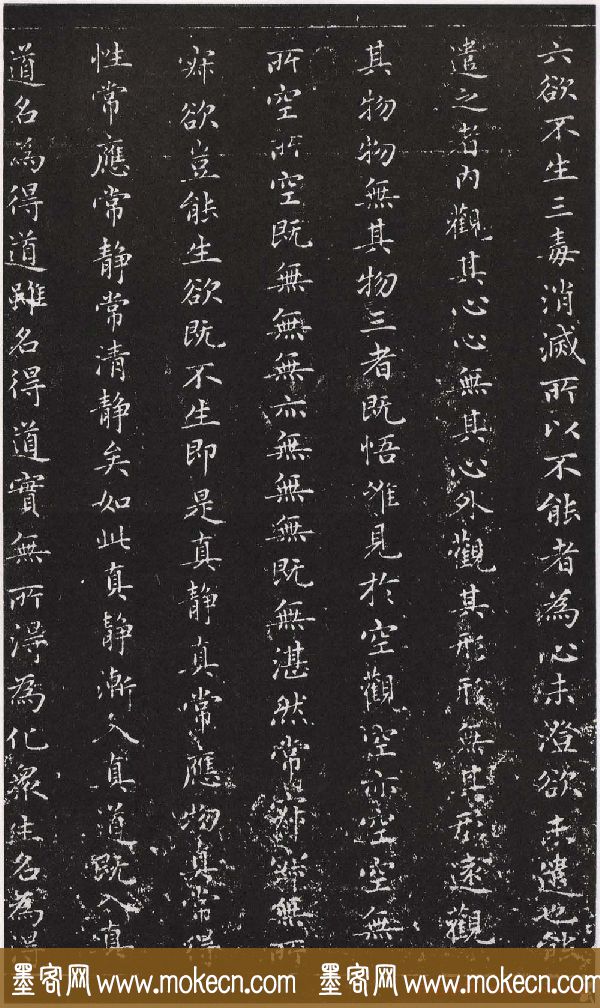 六欲不生三毒消滅所以不能者為心未澄欲未遣也能
遣之者內觀其心心無其心外觀其形形無其形遠觀
其物物無其物三者既悟唯見於空觀空亦空空無
所空所空既無無無亦無無無既無湛然常寂寂無所
寂欲豈能生欲既不生即是真靜真常應物真常得
性常應常靜常清靜矣如此真靜漸入真道既入真
道名為得道雖名得道實無所得為化衆生名為得
墨客网 www.mokecn.com 墨客网 www.mokecn.com